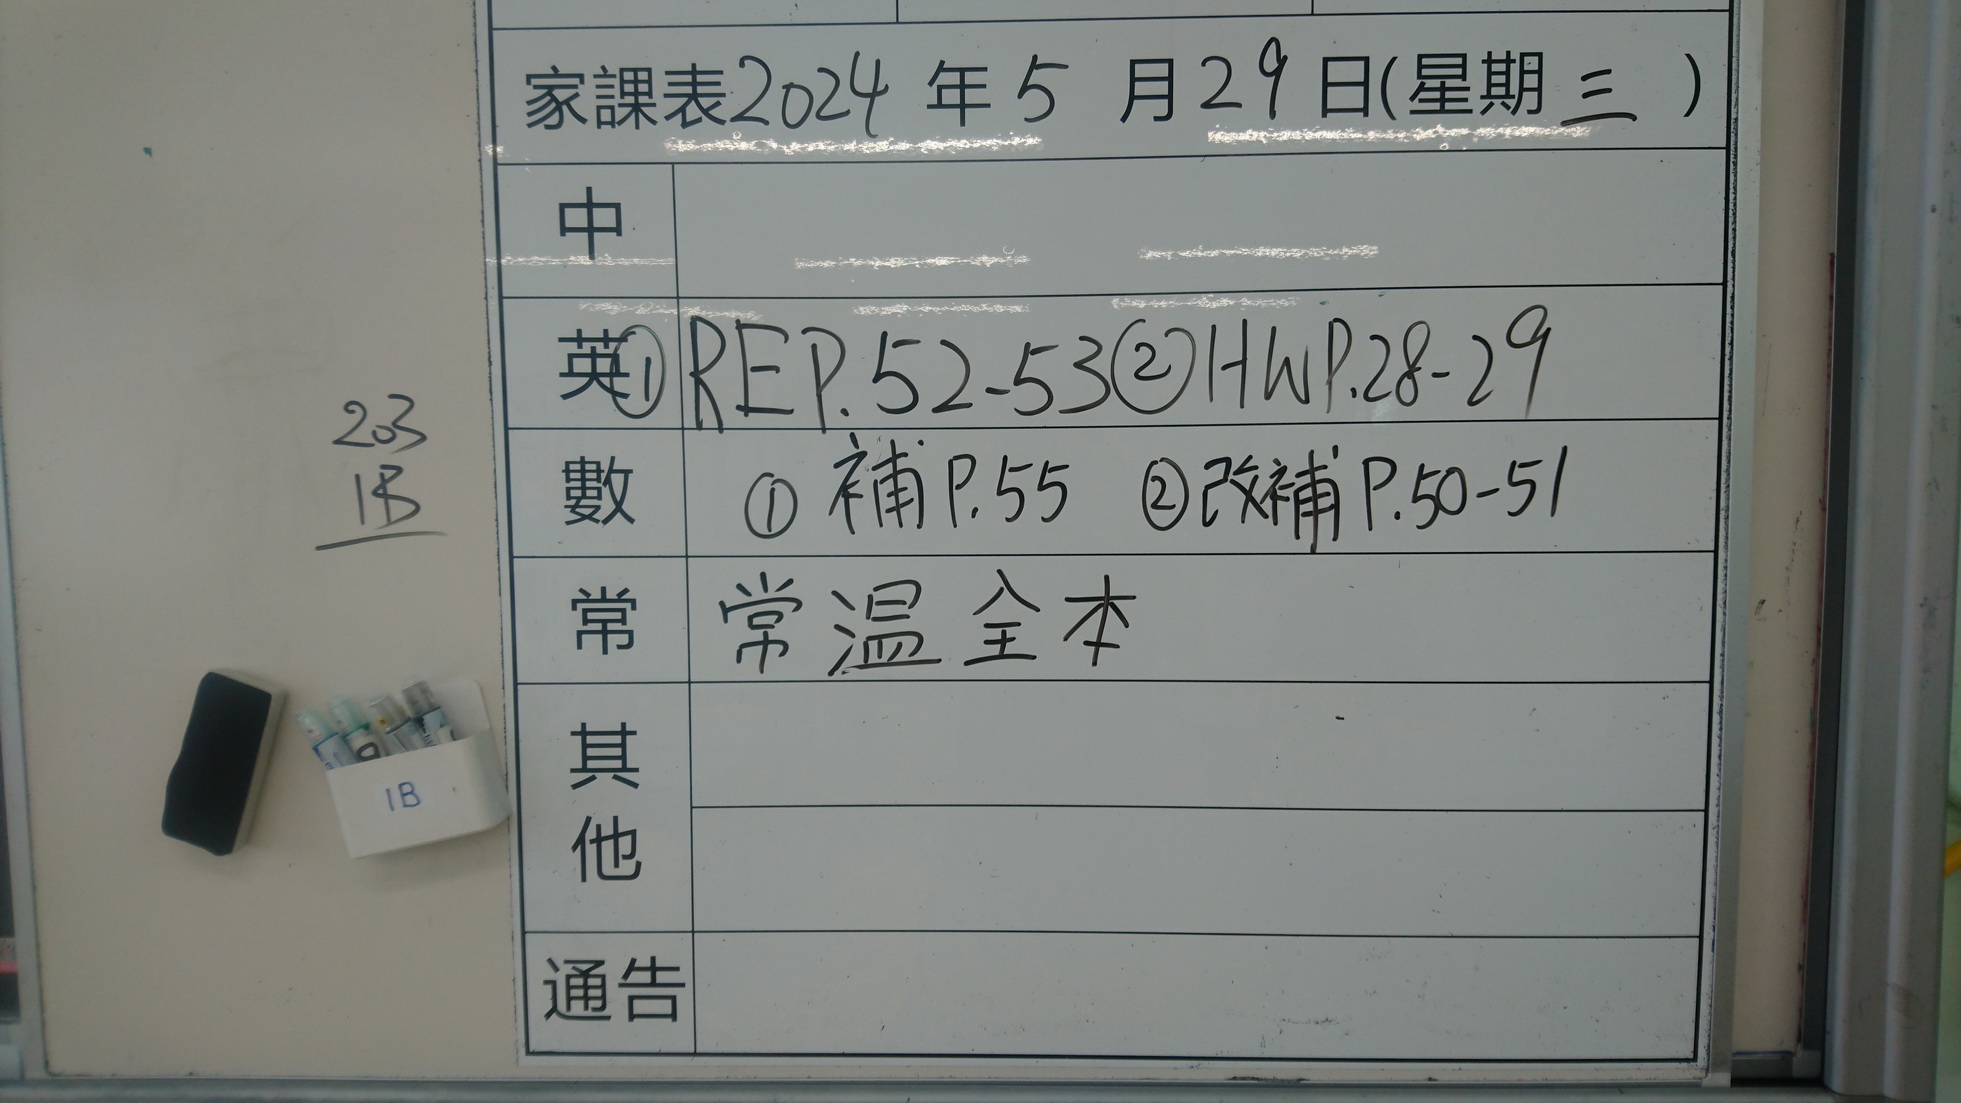 家課表2024年5月29日(星期三)
中
英①REP.52-53②HWP.28-29
數 ①補P.55 ②改補P.50-51
常 常溫全本
其他
通告
203
1B
1B